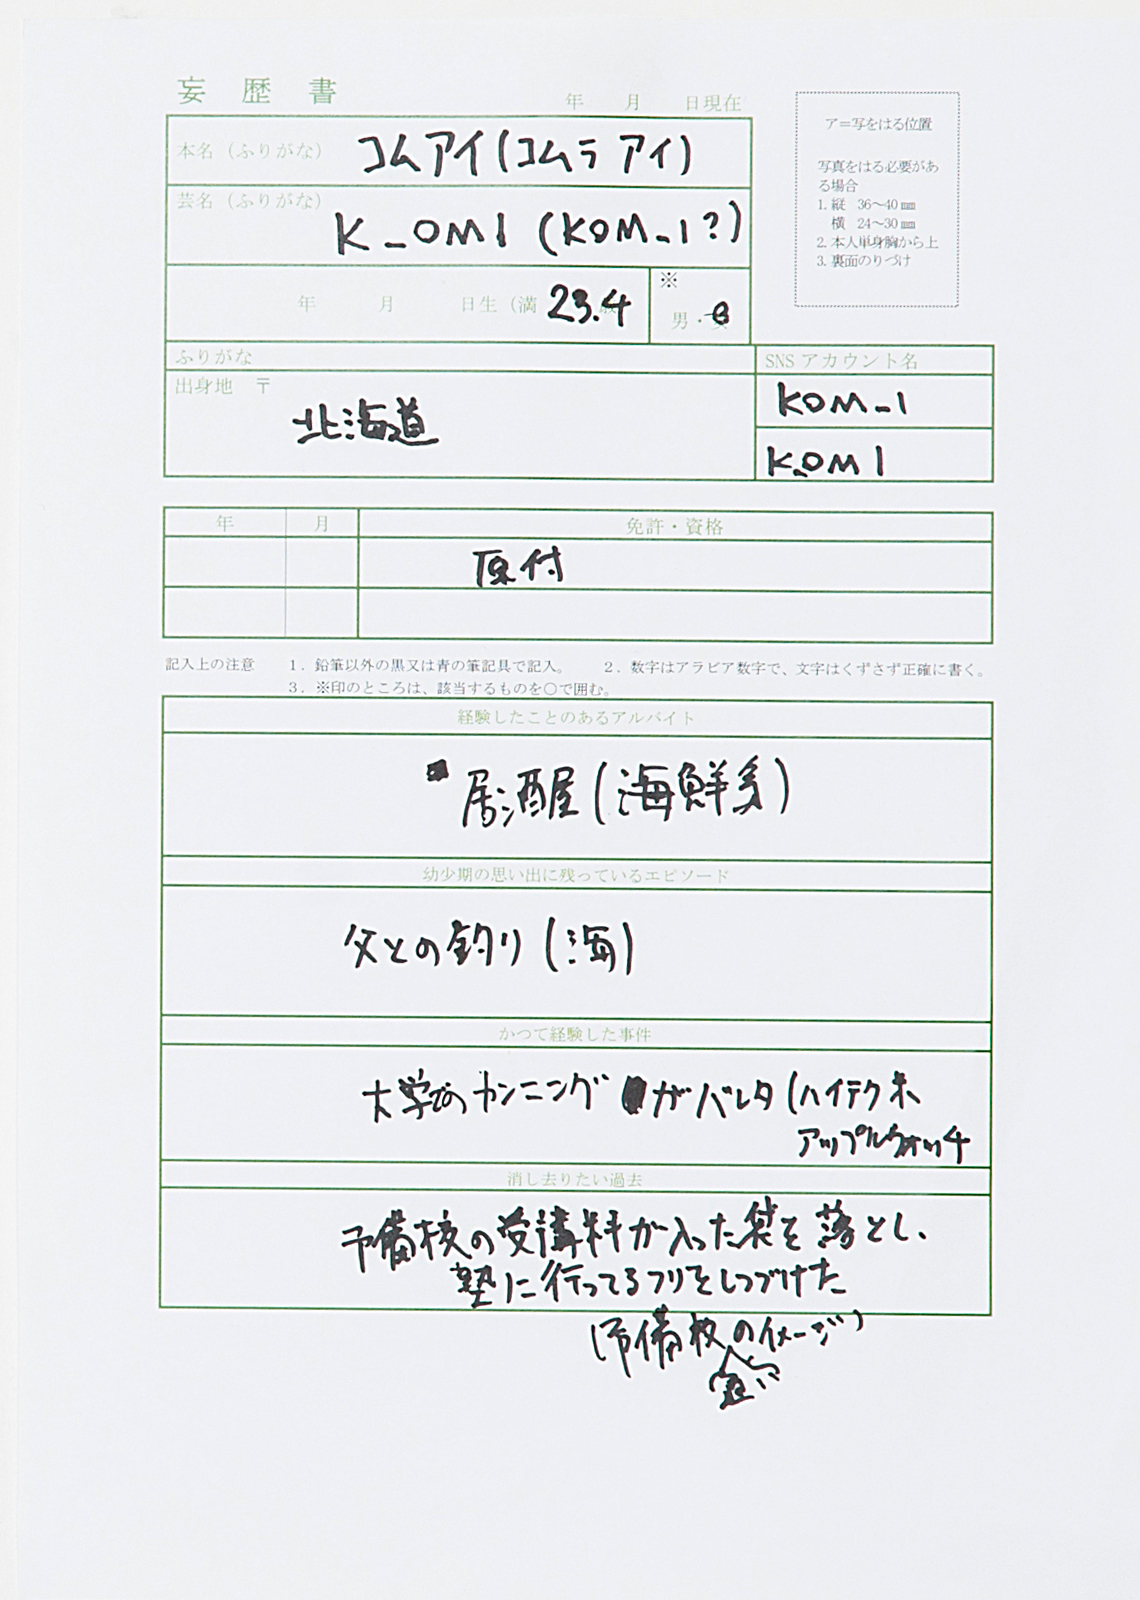 妄歴書
年 月 日現在
ア=写をはる位置
写真をはる必要があ
る場合
1. 縦 36〜40㎜
横 24〜30㎜
2. 本人単身胸から上
3. 裏面のりづけ
本名（ふりがな） コムアイ(コムラ アイ)
芸名（ふりがな） K_OM1 (KOM_1?)
年 月 日生（満 23.4
※
男・女
ふりがな
出身地 〒
北海道
SNS アカウント名
KOM_1
K_OM1
年 月 免許・資格
原付
記入上の注意 1．鉛筆以外の黒又は青の筆記具で記入。 2．数字はアラビア数字で、文字はくずさず正確に書く。
3．※印のところは、該当するものを○で囲む。
経験したことのあるアルバイト
居酒屋(海鮮系)
幼少期の思い出に残っているエピソード
父との釣り(海)
かつて経験した事件
大学でのカンニングがバレタ(ハイテク系
アップルウォッチ
消し去りたい過去
予備校の受講料が入った袋を落とし、
塾に行ってるフリをしつづけた
(予備校のイメージ)